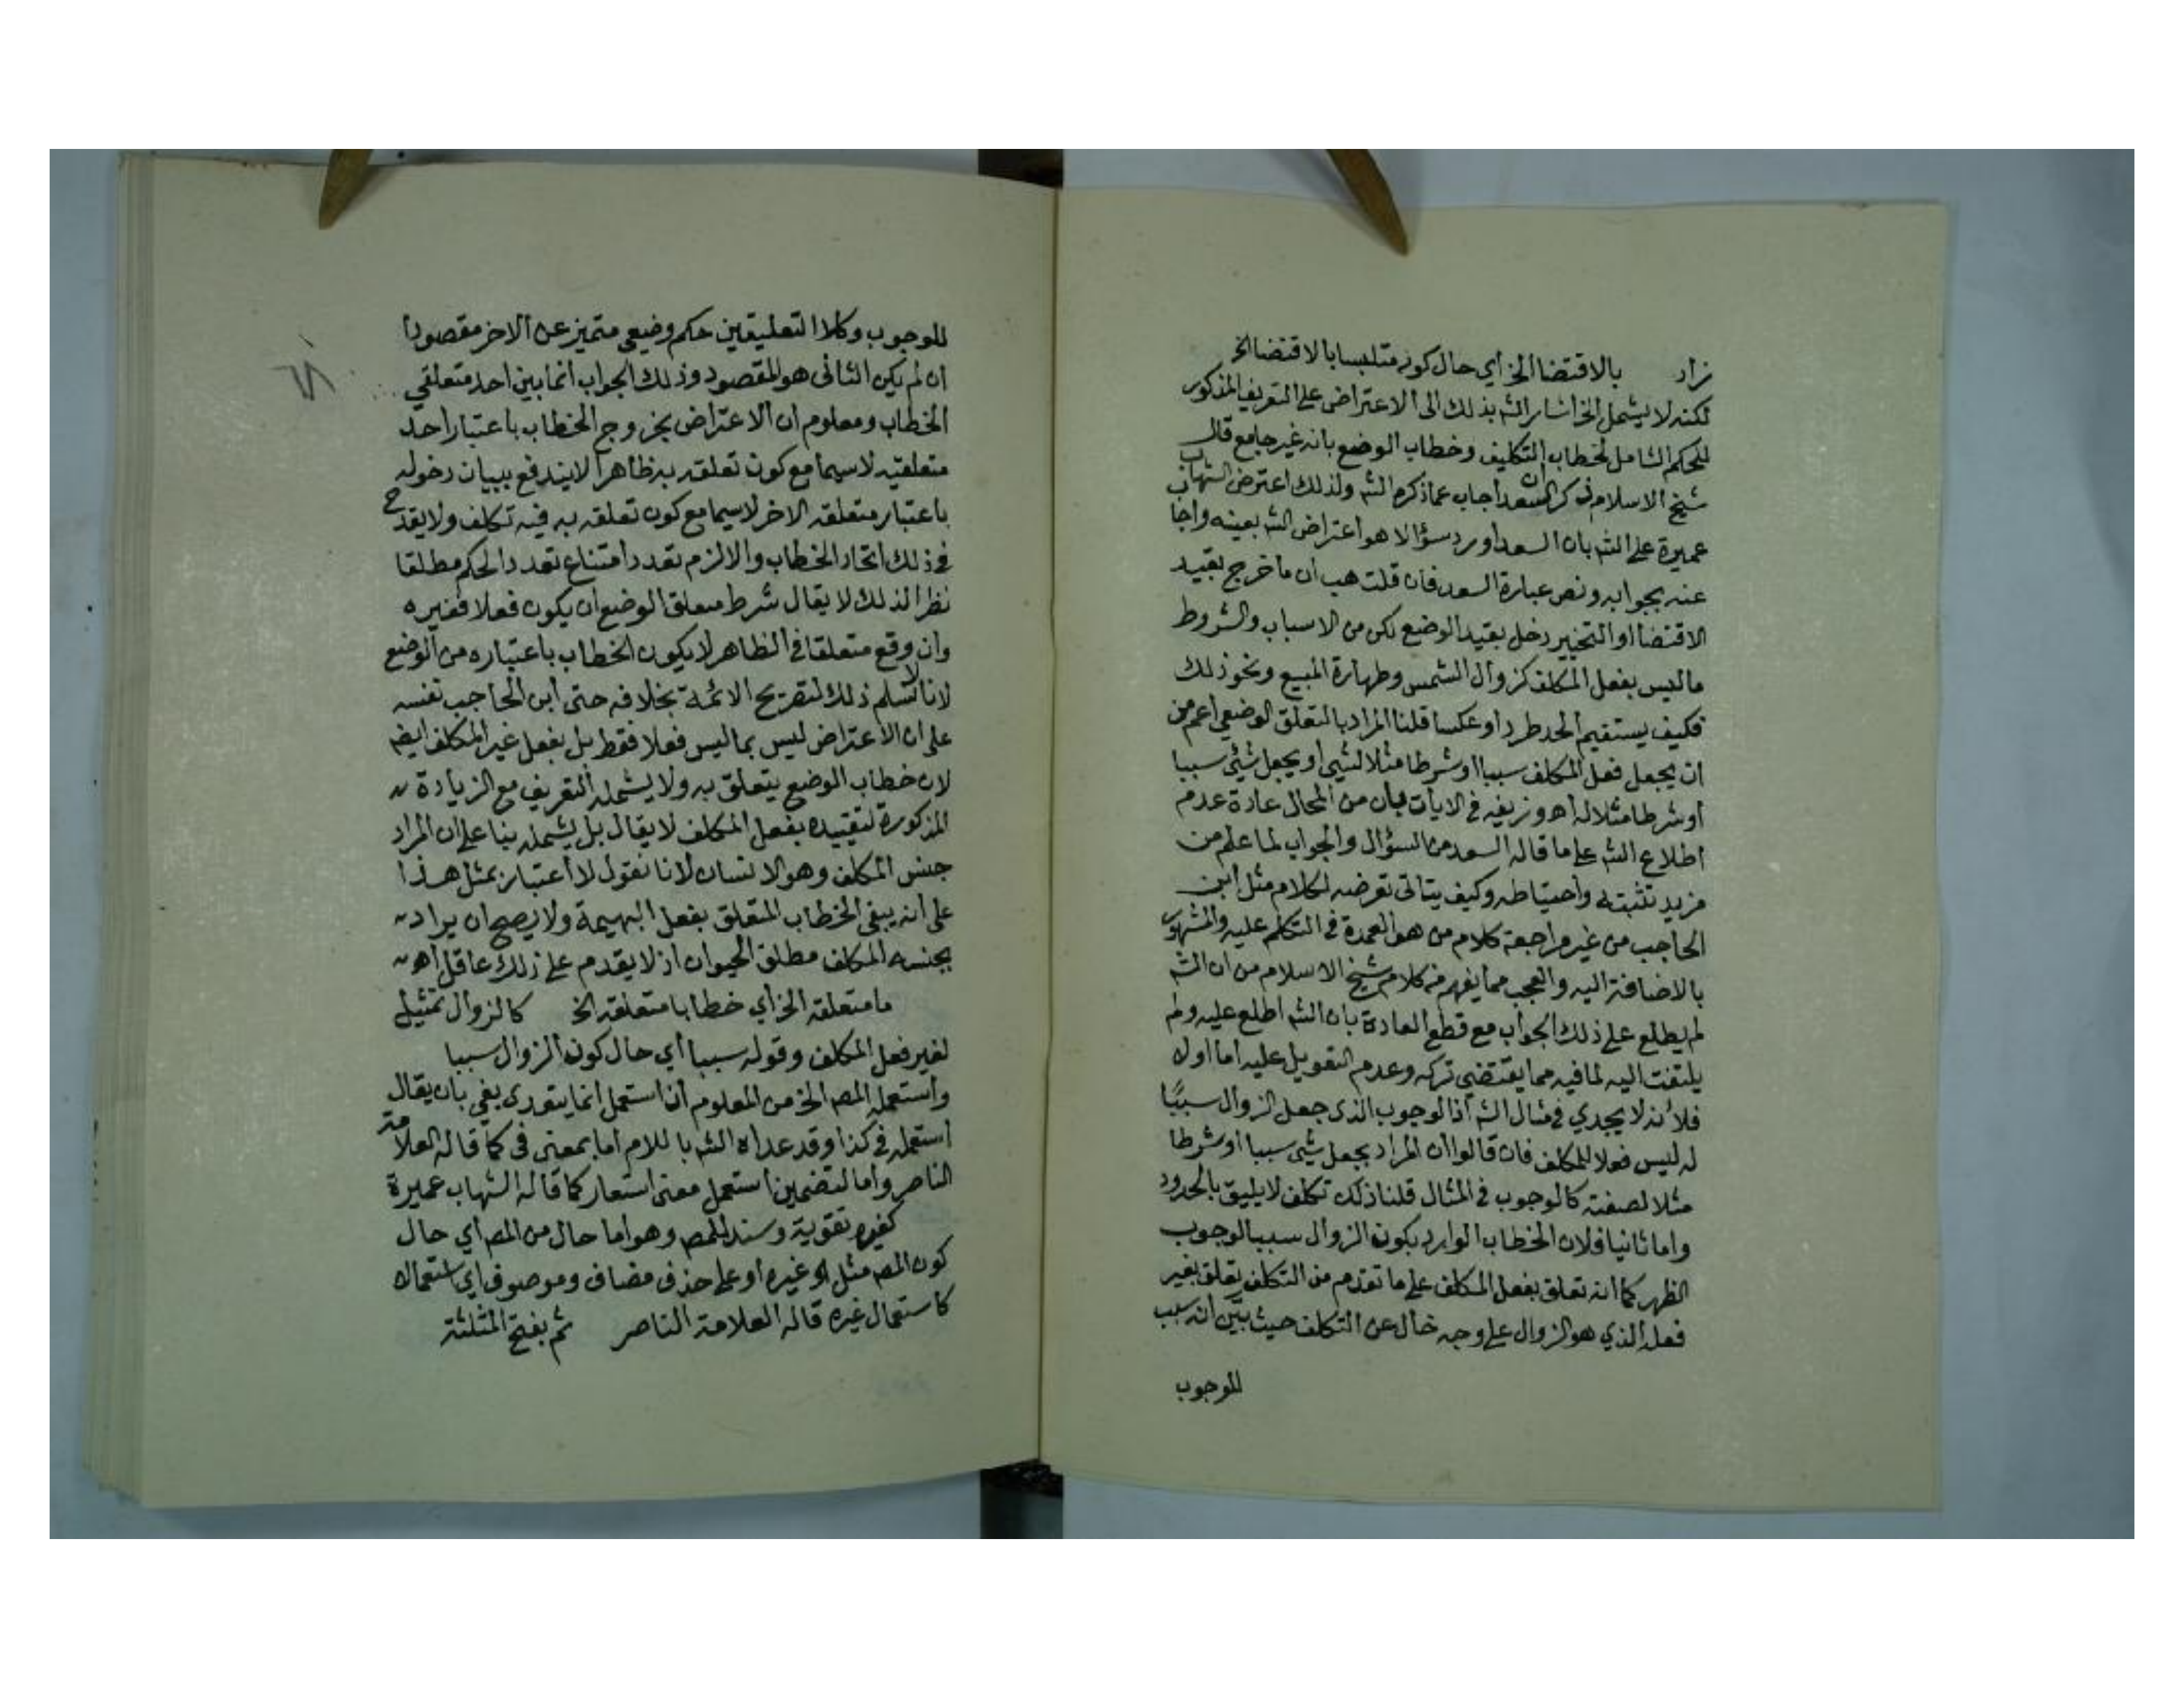 زاد بالاقتضا الخ أي حال كونه متلبسا بالاقتضا الخ
لكنه لا يشمل الخ اشار الشه بذلك الى الاعتراض على التعريف المذكور
للحكم الشامل لخطاب التكليف وخطاب الوضع بانه غير جامع قال
شيخ الاسلام ذكر ان السعد اجاب عما ذكره الشه ولذلك اعترض الشهاب
عميرة على الشه بان السعد اورد سؤالا هو اعتراض الشه بعينه واجا
عنه بجوابه ونص عبارة السعد فان قلت هب ان ما خرج بقيد
الاقتضا او التخيير دخل بقيد الوضع لكن من الاسباب والشروط
ما ليس بفعل المكلف كزوال الشمس وطهارة المبيع ونحو ذلك
فكيف يستقيم الحد طردا وعكسا قلنا المراد بالتعلق الوضعي أعم من
ان يجعل فعل المكلف سببا او شرطا مثلا لشيي او يجعل شيئ سببا
او شرطا مثلا له اهـ وزيفه في الايات بان من المحال عادة عدم
اطلاع الشه على ما قاله السعد من السؤال والجواب لما علم من
مزيد تثبته واحتياطه وكيف يتاتى تعرضه لكلام مثل ابن
الحاجب من غير مراجعة كلام من هو العمدة في التكلم عليه والمشهور
بالاضافة اليه والعجب مما يفهم من كلام شيخ الاسلام من ان الشه
لم يطلع على ذلك الجواب مع قطع العادة بان الشه اطلع عليه ولم
يلتفت اليه لما فيه مما يقتضي تركه وعدم التعويل عليه اما اولا
فلأنه لا يجدي في مثال الشه اذ الوجوب الذي جعل الزوال سببًا
له ليس فعلا للمكلف فان قالوا ان المراد بجعل شيئ سببا او شرطا
مثلا لصفته كالوجوب في المثال قلنا ذلك تكلف لا يليق بالحدود
واما ثانيا فلان الخطاب الوارد بكون الزوال سببا لوجوب
الظهر كما انه تعلق بفعل المكلف على ما تقدم من التكلف تعلق بغير
فعله الذي هو الزوال على وجه خال عن التكلف حيث بيّن أنه سبب
للوجوب
للوجوب وكلا التعليقين حكم وضيعي متميز عن الاخر مقصودا
ان لم يكن الثانى هو المقصود وذلك الجواب انما بين احد متعلقي
الخطاب ومعلوم ان الاعتراض بخروج الخطاب باعتبار احد
متعلقيه لاسيما مع كون تعلقه به ظاهرا لا يندفع ببيان دخوله
باعتبار متعلقه الاخر لاسيما مع كون تعلقه به فيه تكلف ولا يقدح
في ذلك اتحاد الخطاب والا لزم تعدد امتناع تعدد الحكم مطلقا
نظرا لذلك لا يقال شرط متعلق الوضع ان يكون فعلا فغيره
وان وقع متعلقا في الظاهر لا يكون الخطاب باعتباره من الوضع
لانا لا نسلم ذلك لتصريح الائمة بخلافه حتى ابن الحاجب نفسه
على ان الاعتراض ليس بما ليس فعلا فقط بل بفعل غير المكلف ايضه
لان خطاب الوضع يتعلق به ولا يشمله التعريف مع الزيادة
المذكورة لتقييده بفعل المكلف لا يقال بل يشمله بنا على ان المراد
جنس المكلف وهو الانسان لانا نقول لا اعتبار بمثل هذا
على انه يبقى الخطاب المتعلق بفعل البهيمة ولا يصح ان يراد
بجنس المكلف مطلق الحيوان اذ لا يقدم على ذلك عاقل اهـ
ما متعلقه الخ اي خطابا متعلقه الخ كالزوال تمثيل
لغير فعل المكلف وقوله سببا أي حال كون الزوال سببا
واستعمله المصـ الخ من المعلوم ان استعمل انما يتعدى بفي بان يقال
استعمله في كذا وقد عداه الشه باللام اما بمعنى في كما قاله العلامة
الناصر واما لتضمين استعمل معنى استعار كما قاله الشهاب عميرة
كغيره تقوية وسند للمصـ وهو اما حال من المصـ اي حال
كون المصـ مثل غيره او على حذف مضاف وموصوف اي استعمالا
كاستعمال غيره قاله العلامة الناصر ثم بفتح المثلثة